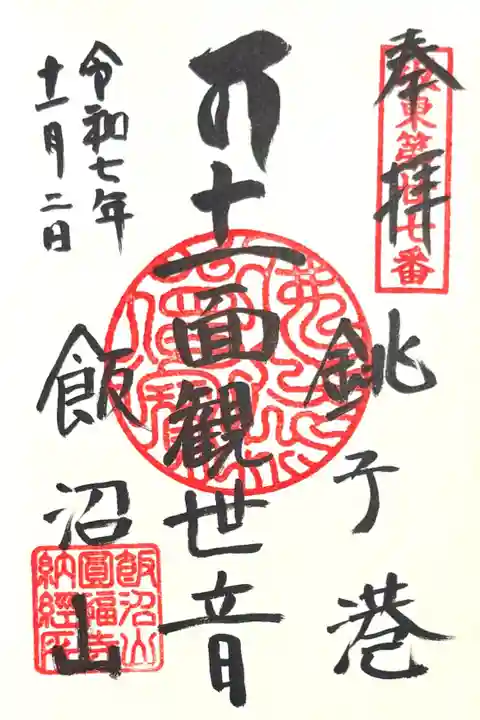 奉拝
坂東第廿七番
銚子港
十一面観世音
飯沼山
令和七年
十一月二日
飯沼山
圓福寺
納經所